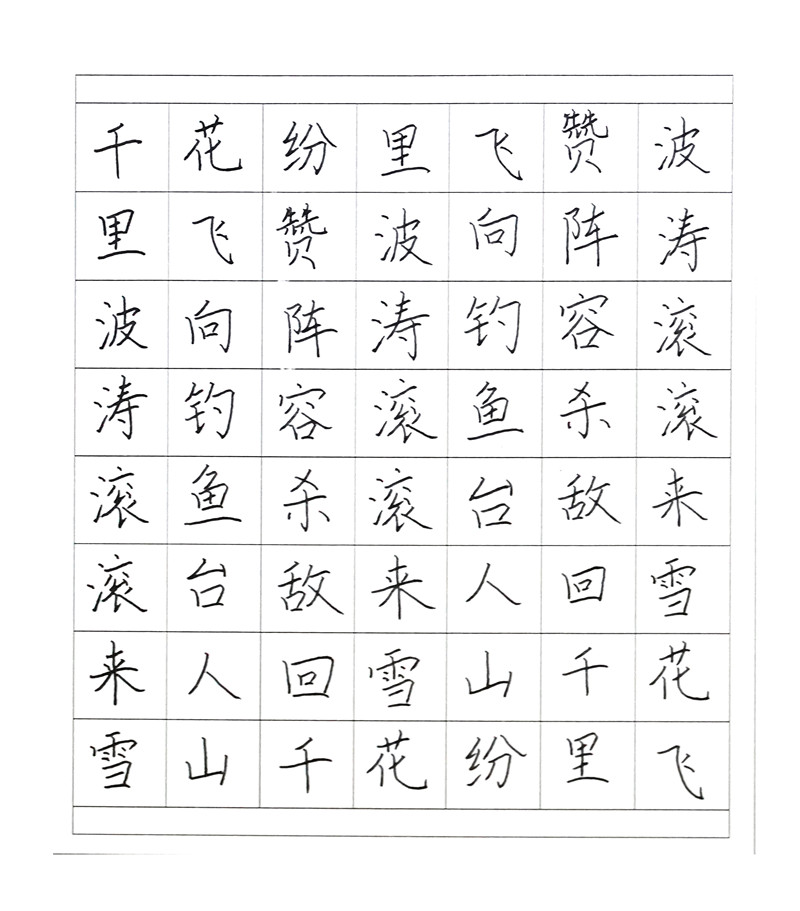 千花纷里飞赞波
里飞赞波向阵涛
波向阵涛钓容滚
涛钓容滚鱼杀滚
滚鱼杀滚台敌来
滚台敌来人回雪
来人回雪山千花
雪山千花纷里飞